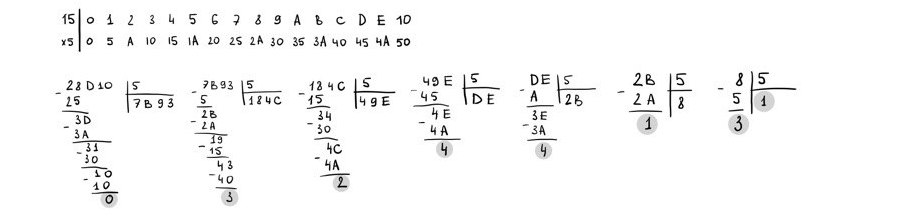 15 0 1 2 3 4 5 6 7 8 9 A B C D E 10
x5 0 5 A 10 15 1A 20 25 2A 30 35 3A 40 45 4A 50
- 28D10 5
25 7B93
- 3D
3A
- 31
30
- 10
10
0
- 7B93 5
5 184C
- 2B
2A
- 19
15
- 43
40
3
- 184C 5
15 49E
- 34
30
- 4C
4A
2
- 49E 5
45 DE
- 4E
4A
4
- DE 5
A 2B
- 3E
3A
4
- 2B 5
2A 8
1
- 8 5
5 1
3